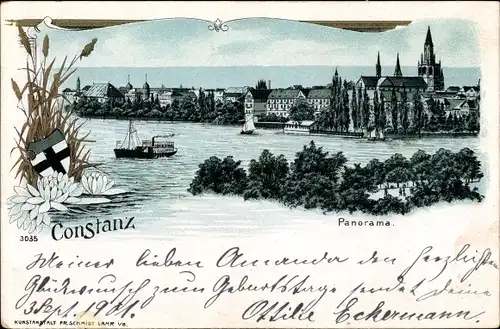 3035
Constanz
Panorama.
Meiner lieben Amanda den herzlichsten
Glückwunsch zum Geburtstage sendet deine
3 Sept. 1901. Ottilie Eckermann.
KUNSTANSTALT FR. SCHMIDT LAHR I/B.